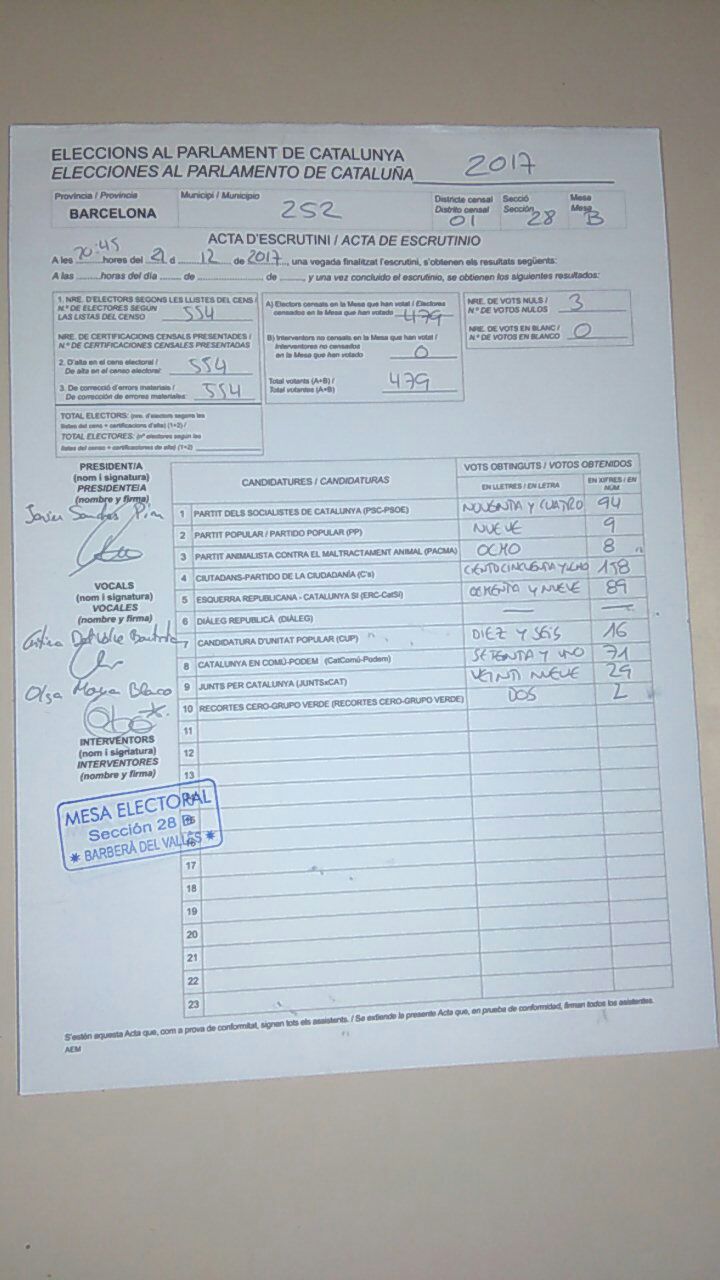 ELECCIONS AL PARLAMENT DE CATALUNYA
ELECCIONES AL PARLAMENTO DE CATALUÑA 2017
Provincia / Provincia
BARCELONA
Municipi / Municipio
252
Districte censal
Distrito censal
01
Secció
Sección
28
Mesa
Mesa
B
ACTA D'ESCRUTINI / ACTA DE ESCRUTINIO
A les 20:45 hores del 21 d 12 de 2017, una vegada finalitzat l'escrutini, s'obtenen els resultats següents:
A las ........ horas del día ........ de ........ de ........, y una vez concluido el escrutinio, se obtienen los siguientes resultados:
1. NRE. D'ELECTORS SEGONS LES LLISTES DEL CENS /
N.º DE ELECTORES SEGÚN
LAS LISTAS DEL CENSO 554
NRE. DE CERTIFICACIONS CENSALS PRESENTADES /
N.º DE CERTIFICACIONES CENSALES PRESENTADAS
2. D'alta en el cens electoral /
De alta en el censo electoral: 554
3. De correcció d'errors materials /
De corrección de errores materiales: 554
TOTAL ELECTORS: (nre. d'electors segons les
llistes del cens + certificacions d'alta) (1+2) /
TOTAL ELECTORES: (nº electores según las
listas del censo + certificaciones de alta) (1+2)
A) Electors censats en la Mesa que han votat / Electores
censados en la Mesa que han votado 479
B) Interventors no censats en la Mesa que han votat /
Interventores no censados
en la Mesa que han votado 0
Total votants (A+B) /
Total votantes (A+B) 479
NRE. DE VOTS NULS /
N.º DE VOTOS NULOS 3
NRE. DE VOTS EN BLANC /
N.º DE VOTOS EN BLANCO 0
PRESIDENT/A
(nom i signatura)
PRESIDENTE/A
(nombre y firma)
Javier
VOCALS
(nom i signatura)
VOCALES
(nombre y firma)
Olga Moya Blanco
INTERVENTORS
(nom i signatura)
INTERVENTORES
(nombre y firma)
MESA ELECTORAL
Sección 28 B
* BARBERÀ DEL VALLÉS *
CANDIDATURES / CANDIDATURAS
VOTS OBTINGUTS / VOTOS OBTENIDOS
EN LLETRES / EN LETRA
EN XIFRES / EN
NÚM
1 PARTIT DELS SOCIALISTES DE CATALUNYA (PSC-PSOE) NOVENTA Y CUATRO 94
2 PARTIT POPULAR / PARTIDO POPULAR (PP) NUEVE 9
3 PARTIT ANIMALISTA CONTRA EL MALTRACTAMENT ANIMAL (PACMA) OCHO 8
4 CIUTADANS-PARTIDO DE LA CIUDADANÍA (C's) CIENTO CINCUENTA Y OCHO 158
5 ESQUERRA REPUBLICANA - CATALUNYA SÍ (ERC-CatSí) OCHENTA Y NUEVE 89
6 DIÀLEG REPUBLICÀ (DIÀLEG) — —
7 CANDIDATURA D'UNITAT POPULAR (CUP) DIEZ Y SEIS 16
8 CATALUNYA EN COMÚ-PODEM (CatComú-Podem) SETENTA Y UNO 71
9 JUNTS PER CATALUNYA (JUNTSxCAT) VEINTI NUEVE 29
10 RECORTES CERO-GRUPO VERDE (RECORTES CERO-GRUPO VERDE) DOS 2
11
12
13
17
18
19
20
21
22
23
S'estén aquesta Acta que, com a prova de conformitat, signen tots els assistents. / Se extiende la presente Acta que, en prueba de conformidad, firman todos los asistentes.
AEM